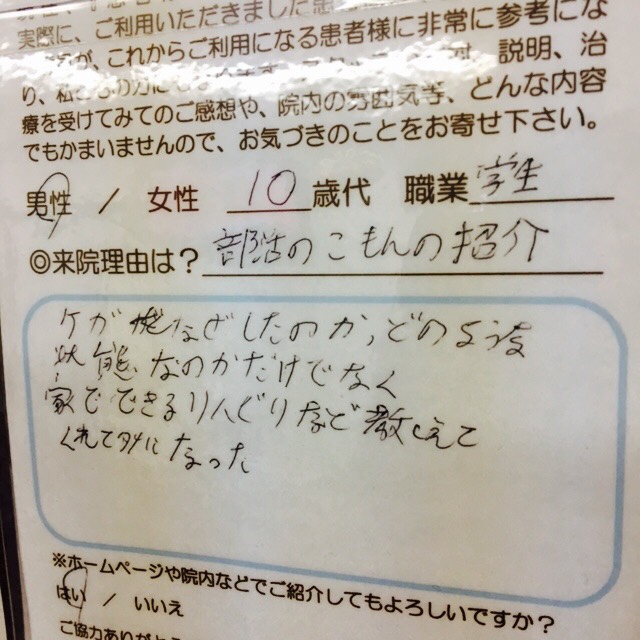 実際に、ご利用いただきました患
が、これからご利用になる患者様に非常に参考にな
り、私 説明、治
療を受けてみてのご感想や、院内の雰囲気等、どんな内容
でもかまいませんので、お気づきのことをお寄せ下さい。
男性 / 女性 10 歳代 職業 学生
◎来院理由は? 部活のこもんの紹介
ケガがなぜしたのか、どのような
状態なのかだけでなく
家でできるりハビリなど教えて
くれてタメになった
※ホームページや院内などでご紹介してもよろしいですか?
はい / いいえ
ご協力あり